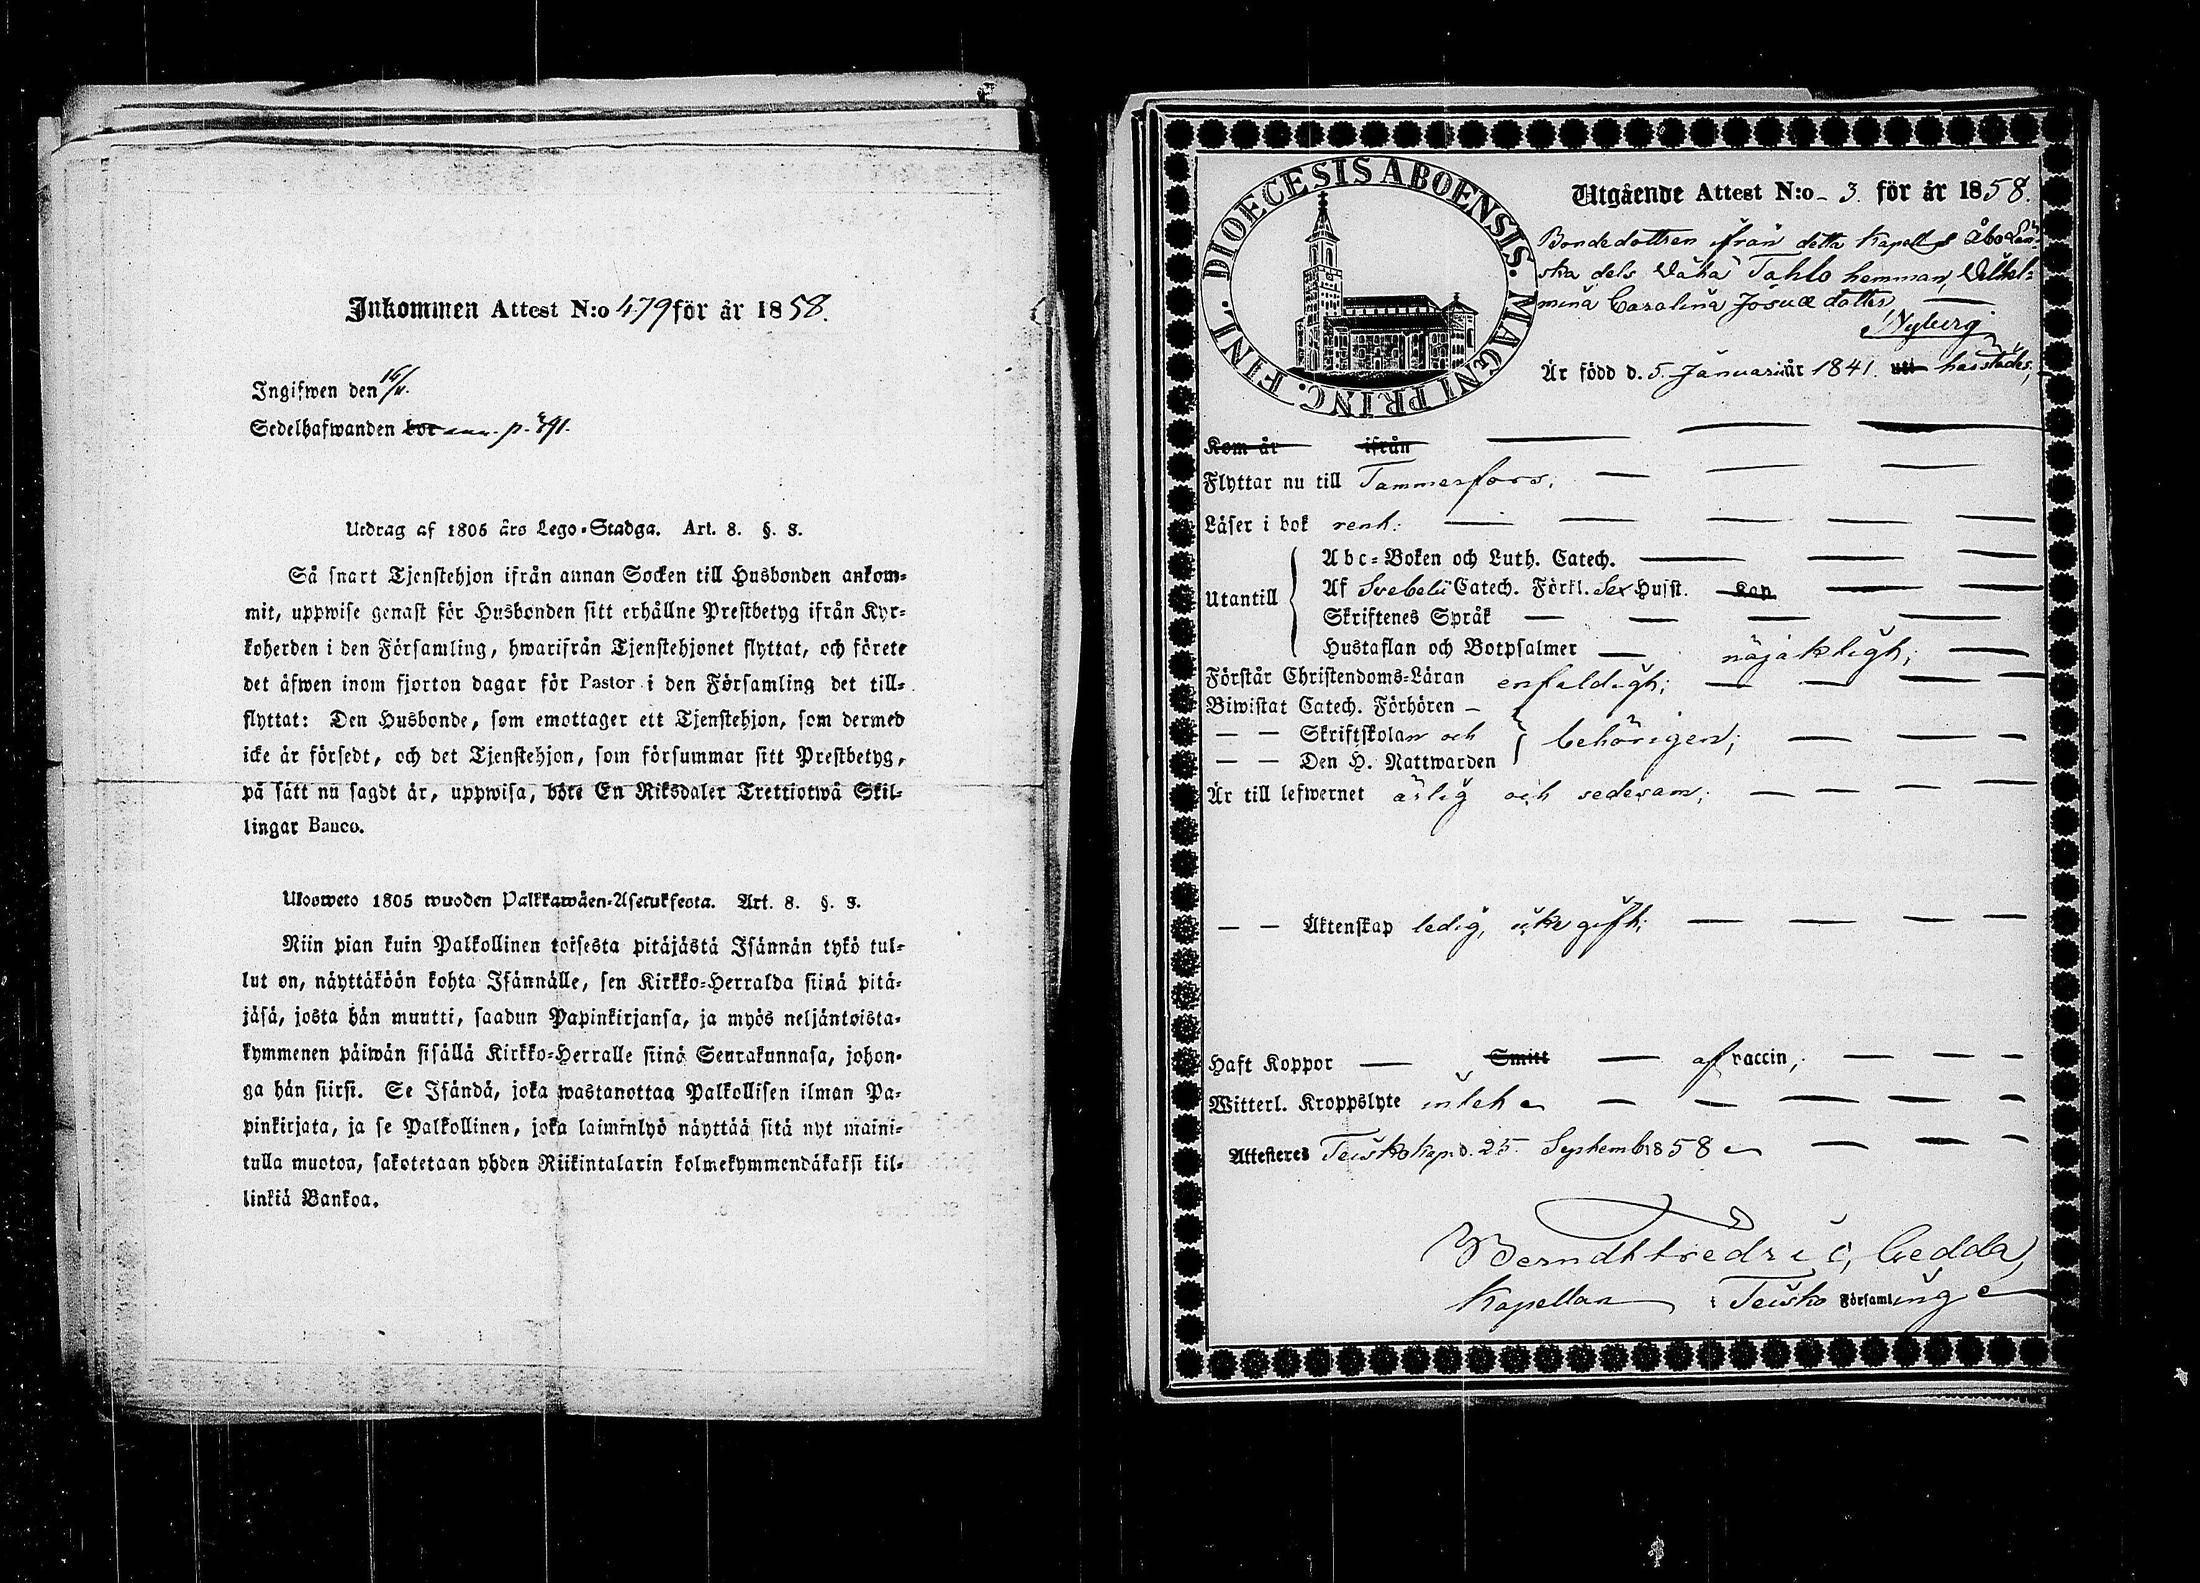 Inkommen Attest N:o 479 för år 1858.
Ingifwen den 16/11.
Sedelhafwanden bor ann. p. 791.
Utdrag af 1805 års Lego-Stadga. Art. 8. §. 3.
Så snart Tjenstehjon ifrån annan Socken till Husbonden ankom-
mit, uppwise genast för Husbonden sitt erhållne Prestbetyg ifrån Kyr-
koherden i den Församling, hwarifrån Tjenstehjonet flyttat, och förete
det äfwen inom fjorton dagar för Pastor i den Församling det till-
flyttat: Den Husbonde, som emottager ett Tjenstehjon, som dermed
icke är försedt, och det Tjenstehjon, som försummar sitt Prestbetyg,
på sätt nu sagdt är, uppwisa, böte En Riksdaler Trettiotwå Skil-
lingar Banco.
Ulosweto 1805 wuoden Palkkawäen-Asetuksesta. Art. 8. §. 3.
Niin pian kuin Palkollinen toisesta pitäjästä Isännän tykö tul-
lut on, näyttäköön kohta Isännälle, sen Kirkko-Herralda siinä pitä-
jäsä, josta hän muutti, saadun Papinkirjansa, ja myös neljäntoista-
kymmenen päiwän sisällä Kirkko-Herralle siinä Seurakunnasa, johon-
ga hän siirsi. Se Isändä, joka wastanottaa Palkollisen ilman Pa-
pinkirjata, ja se Palkollinen, joka laiminlyö näyttää sitä nyt maini-
tulla muotoa, sakotetaan yhden Riikintalarin kolmekymmendäkaksi kil-
linkiä Bankoa.
DIOECESIS ABOENSIS. MAGNI PRINC. FINL.
Utgående Attest N:o 3. för år 1858.
Bondedottren ifrån detta Kapell Åbo Län-
ska dels Wäha Tahlo hemman, Wilhel-
mina Carolina Josuædotter
Nyberg
Är född d. 5. Januari år 1841. uti härstädes;
Kom år ifrån
Flyttar nu till Tammerfors;
Läser i bok rent:
Abc-Boken och Luth. Catech.
Utantill Af Svebelii Catech. Förkl. Sex Hufst. Kap
Skriftenes Språk
Hustaflan och Botpsalmer nöjaktigt;
Förstår Christendoms-Läran enfaldigt;
Biwistat Catech. Förhören
— — Skriftskolan och behörigen;
— — Den H. Nattwarden
Är till lefwernet ärlig och sedesam;
— — Äktenskap ledig, icke gift;
Haft Koppor Smitt af vaccin;
Witterl. Kroppslyte intet
Attesteres Teisko kap. d. 25. Septemb. 1858
Berndt Fredric Gedda,
Kapellan i Teisko Församling